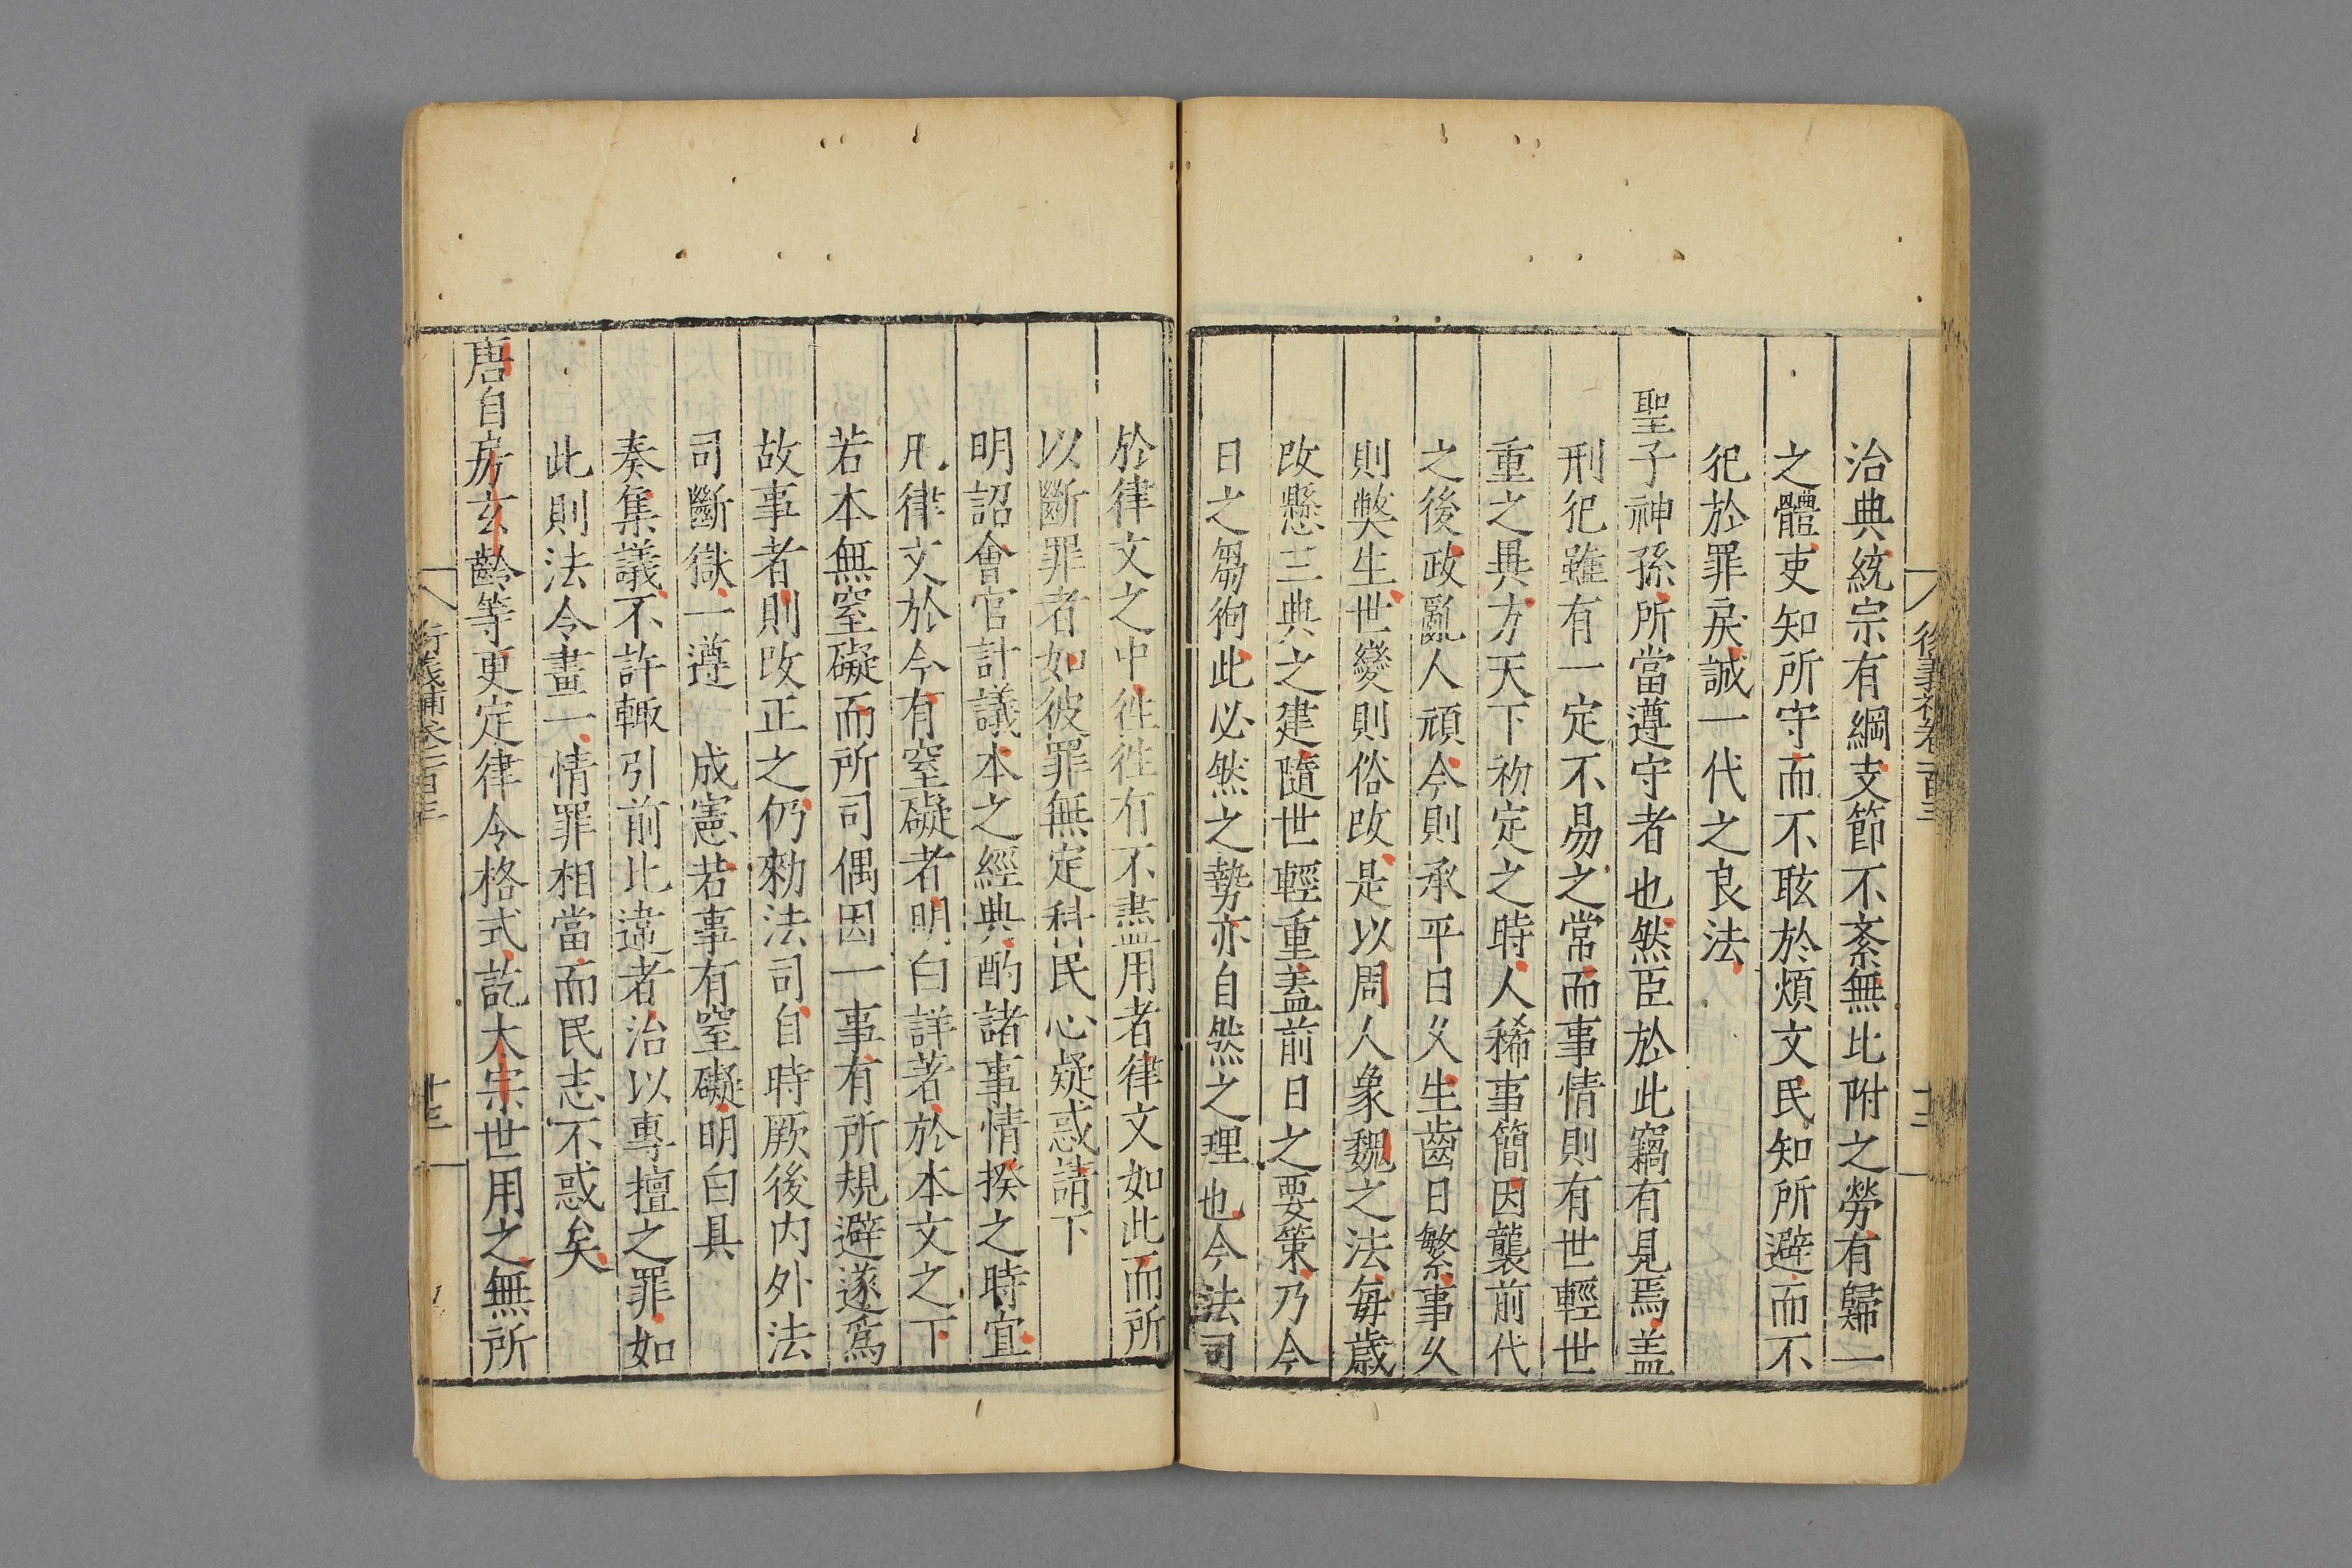 治典統宗有綱支節不紊無比附之勞有歸一
之體吏知所守而不眩於煩文民知所避而不
犯於罪戾誠一代之良法
聖子神孫所當遵守者也然臣於此竊有見焉盖
刑犯雖有一定不易之常而事情則有世輕世
重之異方天下初定之時人稀事簡因襲前代
之後政亂人頑今則承平日乆生齒日繁事乆
則弊生世變則俗改是以周人象魏之法每歲
改懸三典之建隨世輕重盖前日之要策乃今
日之芻狗此必然之勢亦自然之理也今法司
於律文之中徃徃有不盡用者律文如此而所
以斷罪者如彼罪無定科民心疑惑請下
明詔會官計議本之經典酌諸事情揆之時宜
凡律文於今有窒礙者明白詳著於本文之下
若本無窒礙而所司偶因一事有所規避遂爲
故事者則改正之仍勑法司自時厥後内外法
司斷獄一遵 成憲若事有窒礙明白具
奏集議不許輙引前比違者治以專擅之罪如
此則法令畫一情罪相當而民志不惑矣
唐自房玄齡等更定律令格式訖太宗世用之無所
衍義補卷一百三
十三